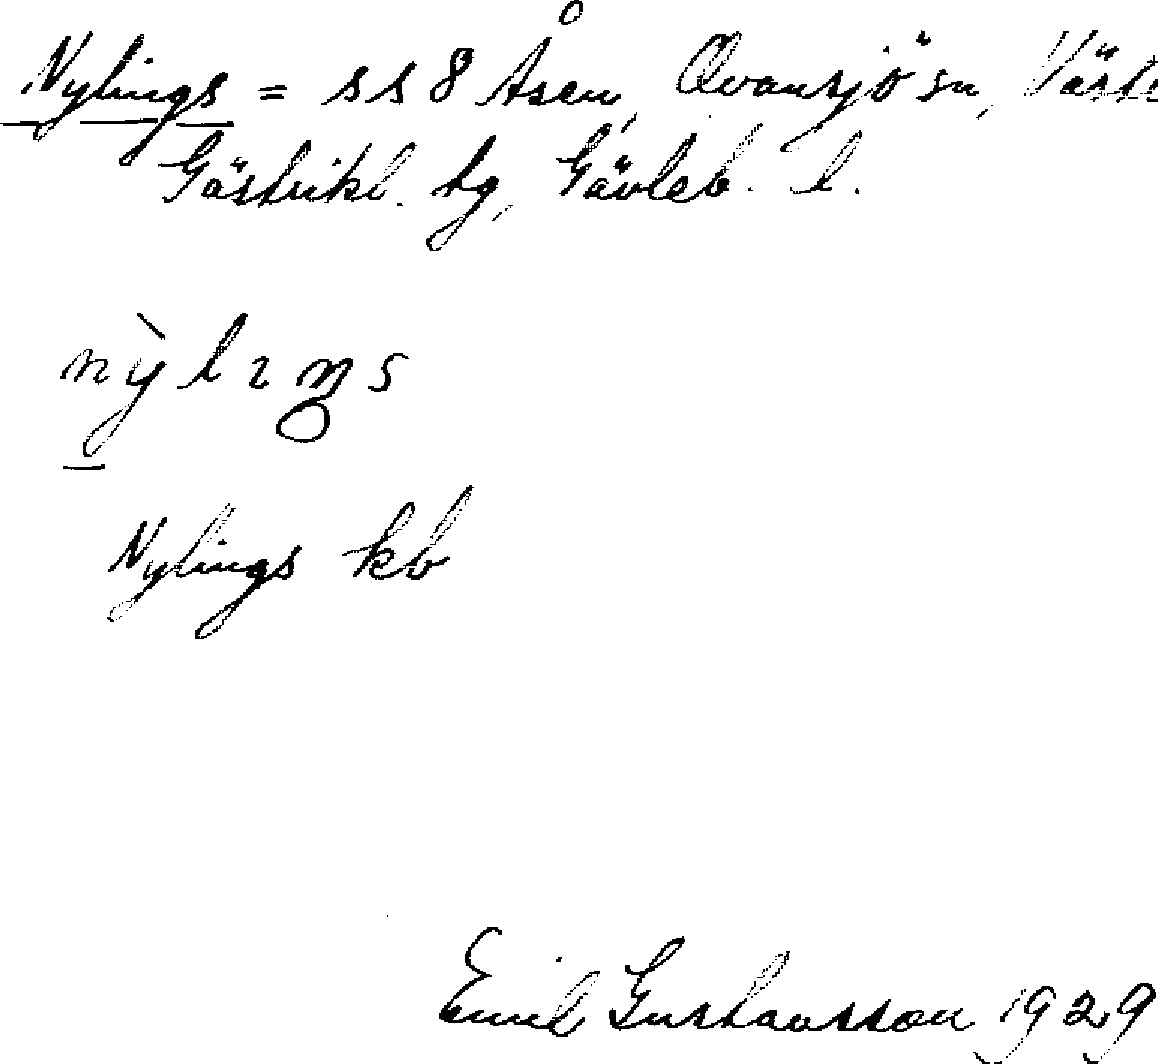 Nylings = ss 8 Åsen, Ovansjö sn, Västr
Gästrikl. tg, Gävleb. l.
nỳlıŋs
Nylings kb
Emil Gustavsson 1929